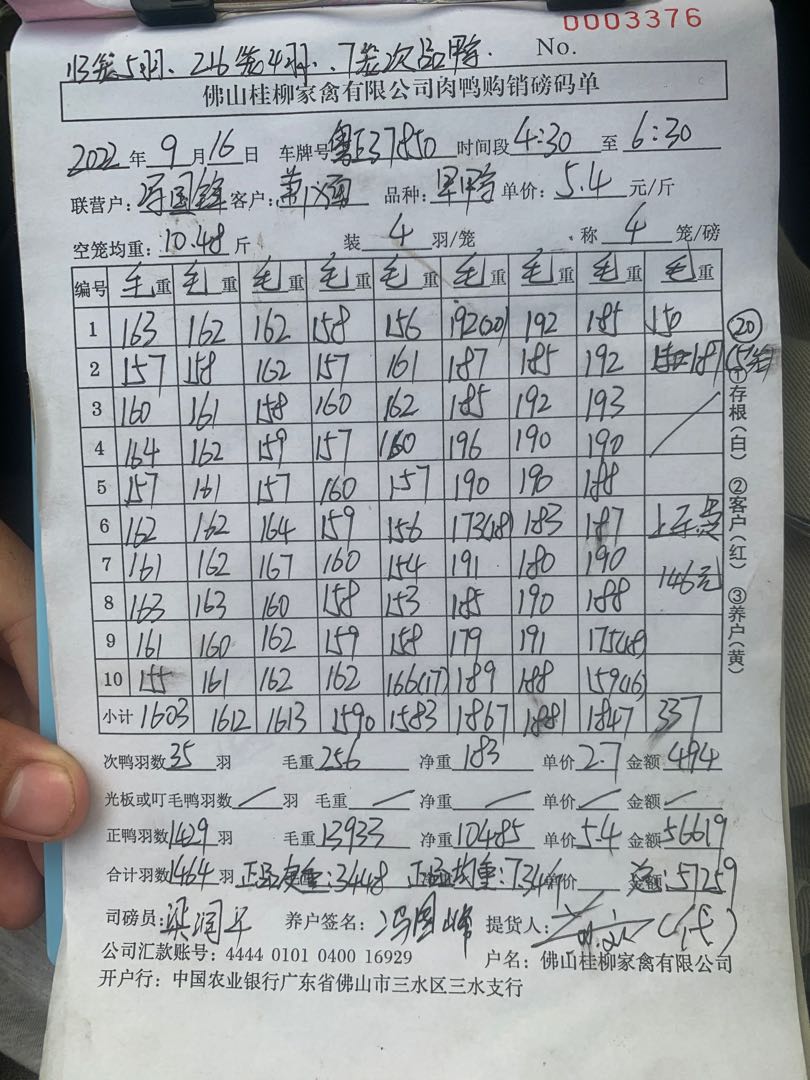 0003376
113笼5羽、216笼4羽、7笼次品鸭. No.
佛山桂柳家禽有限公司肉鸭购销磅码单
2022年9月16日 车牌号粤E37850 时间段4:30至6:30
联营户:冯国锋 客户: 品种: 单价:5.4元/斤
空笼均重:10.48斤 装4羽/笼 称4笼/磅
编号 毛重 毛重 毛重 毛重 毛重 毛重 毛重 毛重 毛重
1 163 162 162 158 156 192(20) 192 185 150
2 157 158 162 157 161 187 185 192 187
3 160 161 158 160 162 185 192 193
4 164 162 159 157 160 196 190 190
5 157 161 157 160 157 190 190 188
6 162 162 164 159 156 173(18) 183 187
7 161 162 167 160 154 191 180 190 146元
8 163 163 160 158 153 185 190 188
9 161 160 162 159 158 179 191 175(18)
10 155 161 162 162 166(17) 189 188 159(16)
小计 1603 1612 1613 1590 1583 1867 1881 1847 337
20
①存根(白) ②客户(红) ③养户(黄)
次鸭羽数35羽 毛重256 净重183 单价2.7 金额494
光板或叮毛鸭羽数/羽 毛重/ 净重/ 单价/ 金额/
正鸭羽数1429羽 毛重13933 净重10485 单价5.4 金额56619
合计羽数1464羽 :3448 正品均重:7.34 单价 金额:57259
司磅员:梁润平 养户签名:冯国峰 提货人:(代)
公司汇款账号:4444 0101 0400 16929 户名:佛山桂柳家禽有限公司
开户行:中国农业银行广东省佛山市三水区三水支行